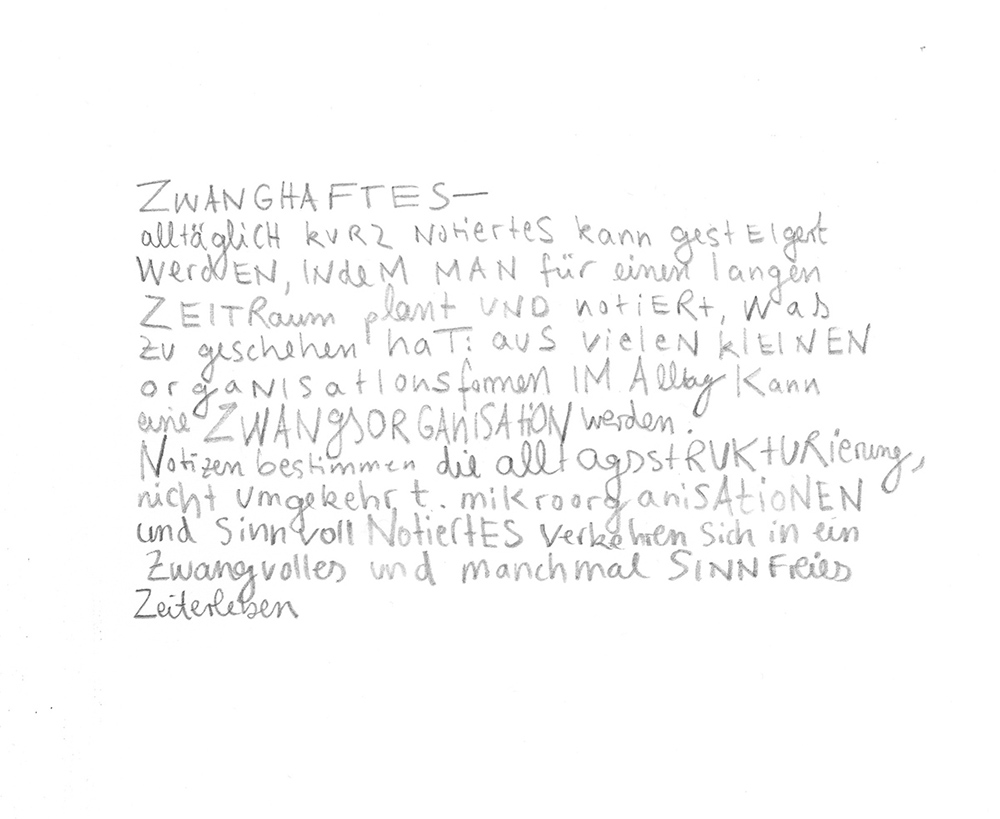 ZWANGHAFTES—
alltägliCH kURZ NotiertES kann gestEIgert
WerdEN, INdeM MAN für einen langen
ZEITRaum plant UND notiERt, Was
ZU geschehen haT: aUS vielEN klEINEN
orgaNISatIonsformen IM Alltag Kann
eine ZWANgSORGANiSATiON werden.
Notizen bestimmen die alltagsstRUKtURierung,
nicht Umgekehrt. mikroorganiSAtioNEN
und Sinnvoll NotiertES verkehren Sich in ein
Zwangvolles und manchmal SINNFReies
Zeiterleben